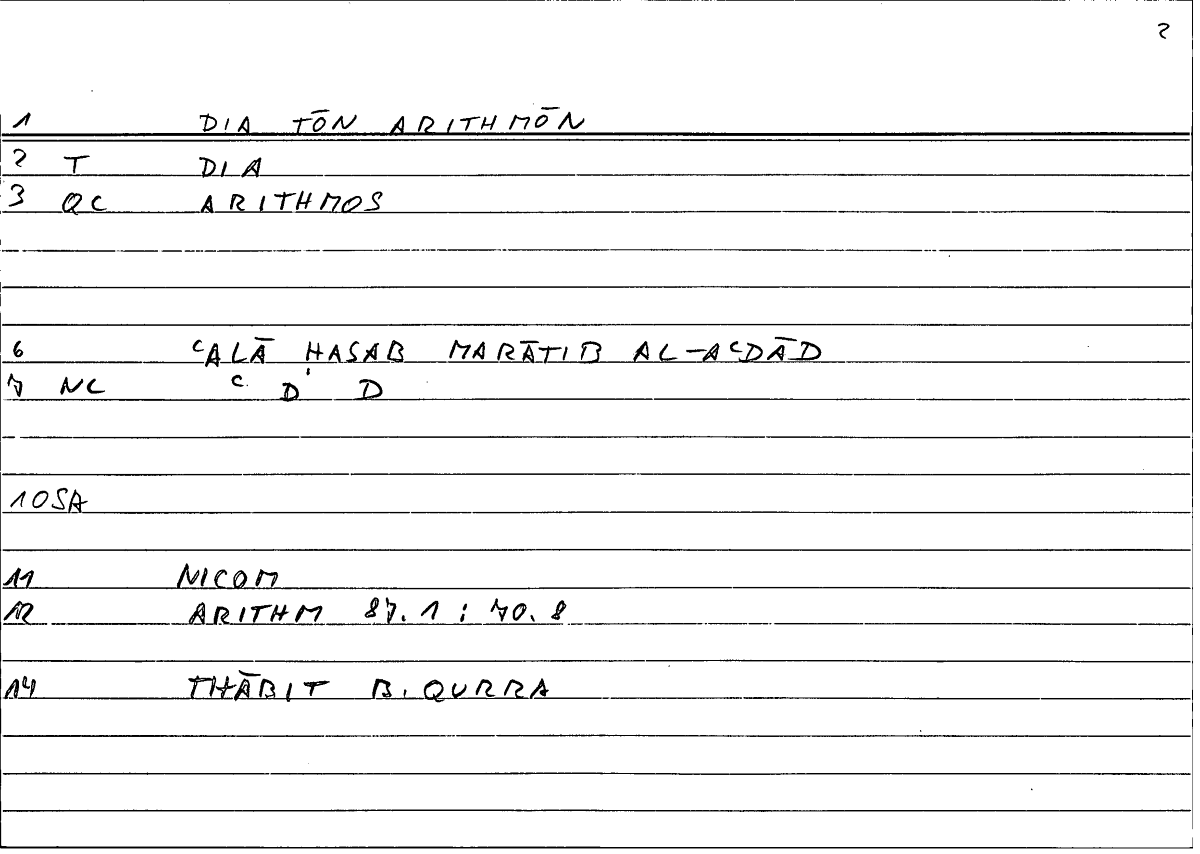 2
1 DIA TŌN ARITHMŌN
2 T DIA
3 QC ARITHMOS
6 ʿALĀ HASAB MARĀTIB AL-AʿDĀD
7 NC ʿ D D
10 SA
11 NICOM
12 ARITHM 87.1 : 70.8
14 THĀBIT B. QURRA